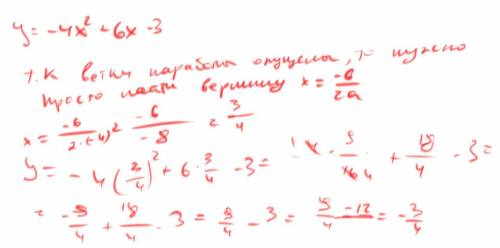 y = -4x² + 6x - 3
т.к ветки параболы опущены, то нужно
просто найти вершину x = -b/2a
x = -6/2·(-4) = -6/-8 = 3/4
y = -4(3/4)² + 6·3/4 - 3 = 9/ + 18/4 - 3 =
= -9/4 + 18/4 - 3 = 9/4 - 3 = 9-12/4 = -3/4